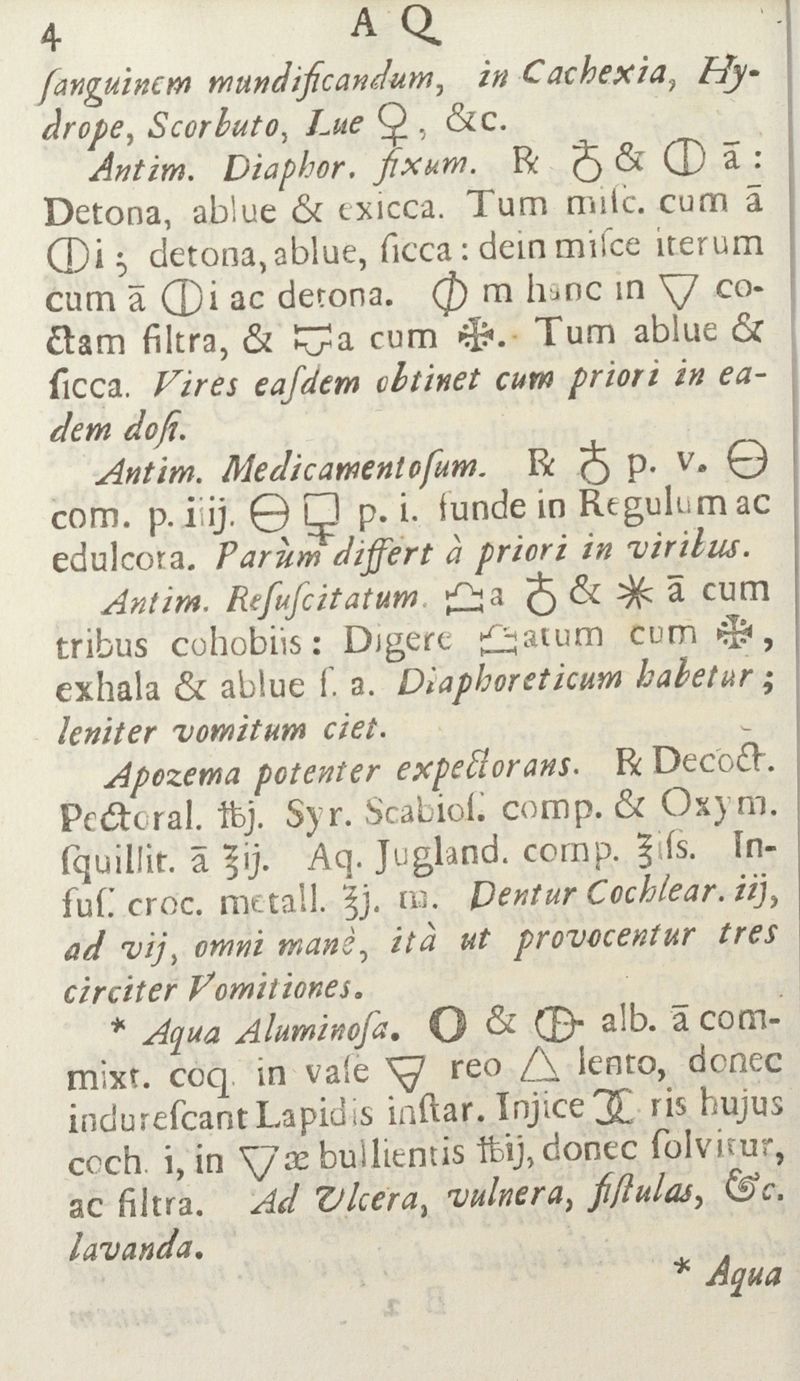 4 A Q
ſanguinem mundificandum, in Cachexia, Hy-
drope, Scorbuto, Lue ♀, &c.
Antim. Diaphor. fixum. ℞ ♁ & 🜕 ā:
Detona, ablue & exicca. Tum miſc. cum ā
🜕i; detona, ablue, ſicca: dein miſce iterum
cum ā 🜕i ac detona. m hanc in 🜄 co-
ctam filtra, & a cum 🜊. Tum ablue &
ſicca. Vires eaſdem obtinet cum priori in ea-
dem doſi.
Antim. Medicamentoſum. ℞ ♁ p. v. 🜔
com. p. iiij. 🜔 🜿 p. i. funde in Regulum ac
edulcora. Parùm differt à priori in viribus.
Antim. Reſuſcitatum. 🜞a ♁ & ✳ ā cum
tribus cohobiis: Digere atum cum 🜊,
exhala & ablue ſ. a. Diaphoreticum habetur;
leniter vomitum ciet.
Apozema potenter expectorans. ℞ Decoct.
Pectoral. ℔j. Syr. Scabioſ. comp. & Oxym.
ſquillit. ā ℥ij. Aq. Jugland. comp. ℥iſs. In-
fuſ. croc. metall. ℥j. m. Dentur Cochlear. iij,
ad vij, omni manè, ità ut provocentur tres
circiter Vomitiones.
* Aqua Aluminoſa. O & alb. ā com-
mixt. coq. in vaſe 🜃 reo 🜂 lento, donec
indureſcant Lapidis inſtar. Injice ris hujus
coch. i, in 🜄æ bullientis ℔ij, donec ſolvitur,
ac filtra. Ad Ulcera, vulnera, fiſtulas, &c.
lavanda.
* Aqua